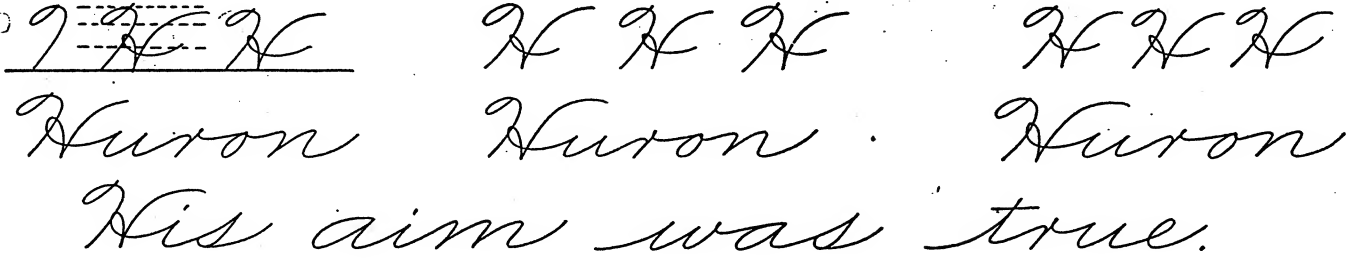 H H H H H H H H
Huron Huron Huron
His aim was true.